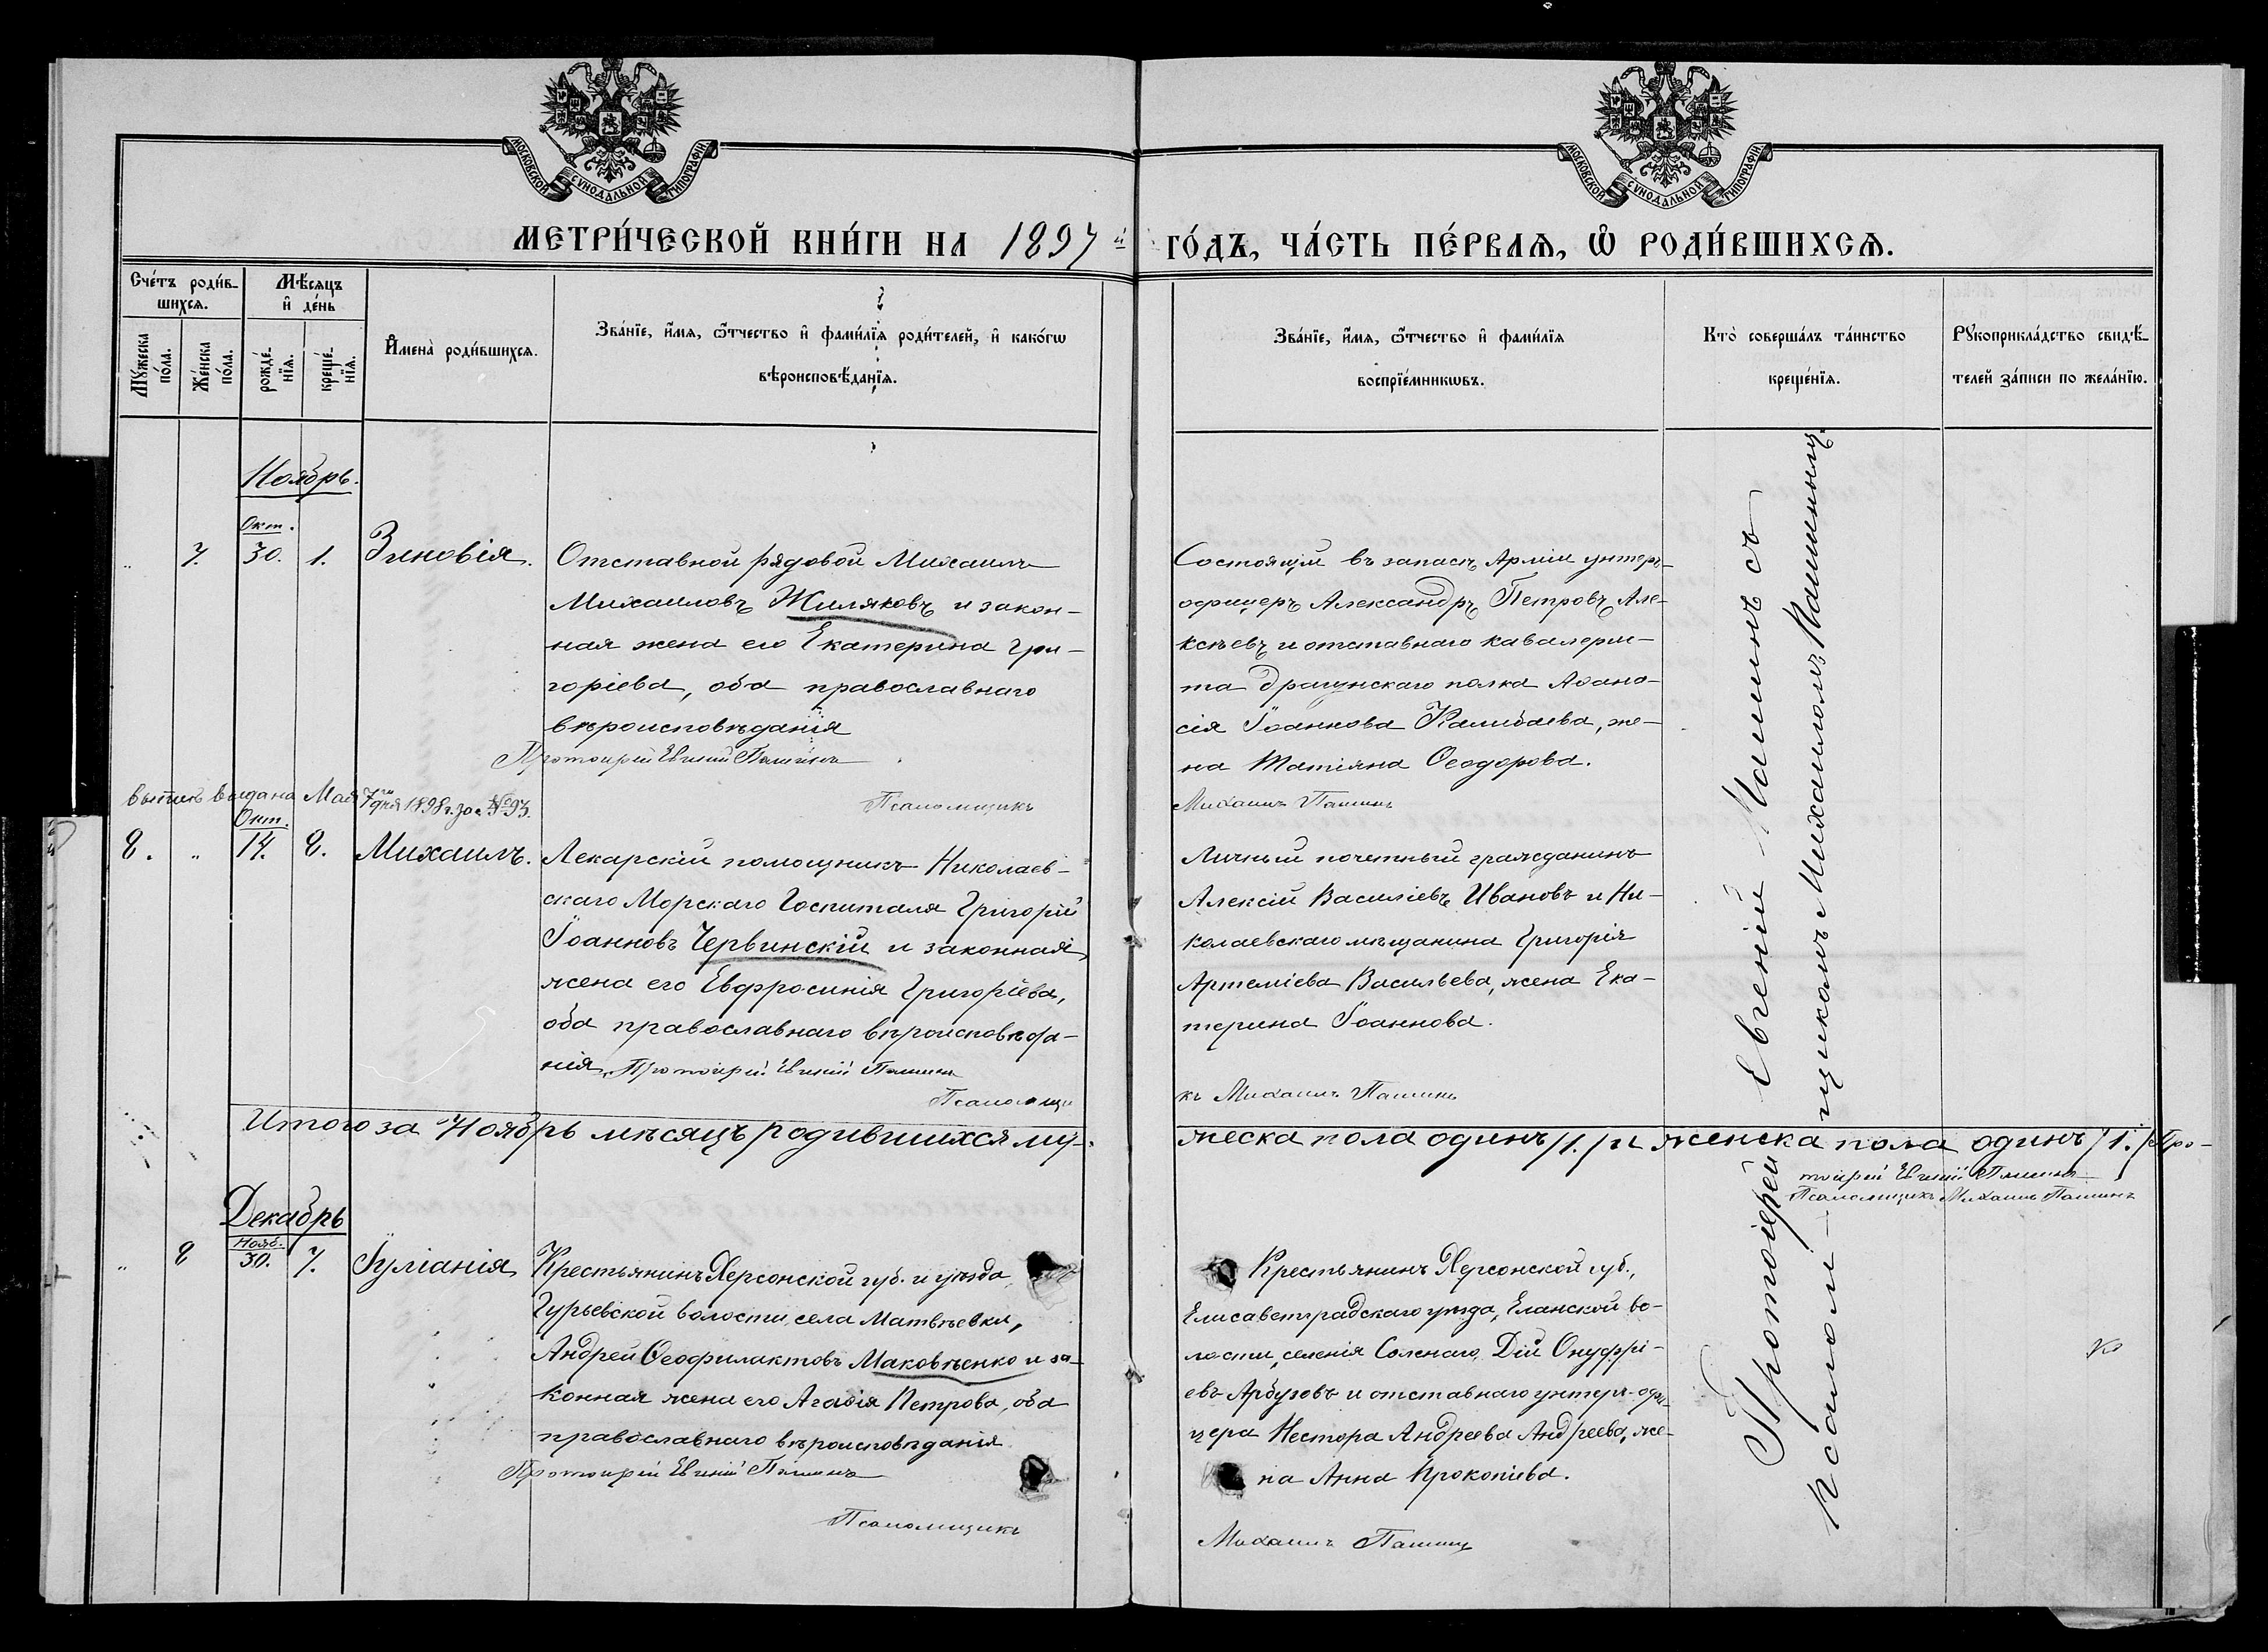 МОСКОВСКОЙ СѴНОДАЛЬНОЙ ТИПОГРАФІИ
МОСКОВСКОЙ СѴНОДАЛЬНОЙ ТИПОГРАФІИ
МЕТРИ́ЧЕСКОЙ КНИ́ГИ НА 1897 й ГО́ДЪ, ЧА́СТЬ ПЕ́РВАѦ, Ѡ РОДИ́ВШИХСѦ.
Сче́тъ роди́в-
шихсѧ.
Мѣ́сѧцъ
и҆ де́нь
Мꙋ́жеска
по́ла.
Же́нска
по́ла.
рожде́-
нїѧ.
креще́-
нїѧ.
И҆мена̀ роди́вшихсѧ.
Зва́нїе, и҆́мѧ, ѻ҆́тчество и҆ фами́лїѧ роди́телей, и҆ како́гѡ
вѣроисповѣ́данїѧ.
Зва́нїе, и҆́мѧ, ѻ҆́тчество и҆ фами́лїѧ
воспрїе́мникѡвъ.
Кто̀ соверша́лъ та́инство
креще́нїѧ.
Рꙋкоприкла́дство свидѣ́-
телей за́писи по жела́нїю.
Ноябрь.
Окт.
„ 7. 30. 1. Зиновія.
Отставной рядовой Михаилъ
Михаиловъ Жиляковъ и закон-
ная жена его Екатерина Гри-
горіева, оба православнаго
вѣроисповѣданія
Протоіерей Евгеній Пашинъ
Псаломщикъ
Состоящій въ запасѣ Арміи унтеръ-
офицеръ Александръ Петровъ Але-
ксѣевъ и отставнаго кавалери-
ста драгунскаго полка Аѳана-
сія Іоаннова Калибаева, же-
на Татіяна Ѳеодорова.
Михаилъ Пашинъ
выпись выдана Мая 7го дня 1898 г. за № 93.
Окт.
8. „ 14. 8. Михаилъ.
Лекарскій помощникъ Николаев-
скаго Морскаго Госпиталя Григорій
Іоанновъ Червинскій и законная
жена его Евфросинія Григоріева,
оба православнаго вѣроисповѣда-
нія. Протоіерей Евгеній Пашинъ
Псаломщи
Личный почетный гражданинъ
Алексій Василіевъ Ивановъ и Ни-
колаевскаго мѣщанина Григорія
Артеміева Васильева, жена Ека-
терина Іоаннова.
къ Михаилъ Пашинъ
Итого за Ноябрь мѣсяцъ родившихся му-
жеска пола одинъ /1./ и женска пола одинъ /1./ Про-
тоіерей Евгеній Пашинъ
Псаломщикъ Михаилъ Пашинъ
Декабрь
Нояб.
„ 8 30. 7. Іуліанія
Крестьянинъ Херсонской губ. и уѣзда
Гурьевской волости, села Матвѣевки,
Андрей Ѳеофилактовъ Маковѣенко и за-
конная жена его Агаѳія Петрова, оба
православнаго вѣроисповѣданія
Протоіерей Евгеній Пашинъ
Псаломщикъ
Крестьянинъ Херсонской губ.,
Елисаветградскаго уѣзда, Еланской во-
лости, селенія Соленаго, Дій Онуфрі-
евъ Арбузовъ и отставнаго унтеръ-офи-
цера Нестора Андреева Андреева, же-
на Анна Прокопіева.
Михаилъ Пашинъ
Протоіерей Евгеній Пашинъ съ
псаломщикомъ Михаиломъ Пашинымъ